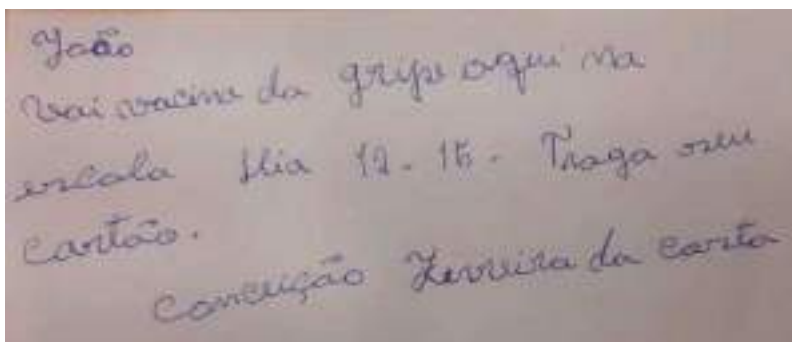 João
Vai vacina da gripe aqui na
escola dia 12-15. Traga seu
cartão.
Conceição Ferreira da Costa